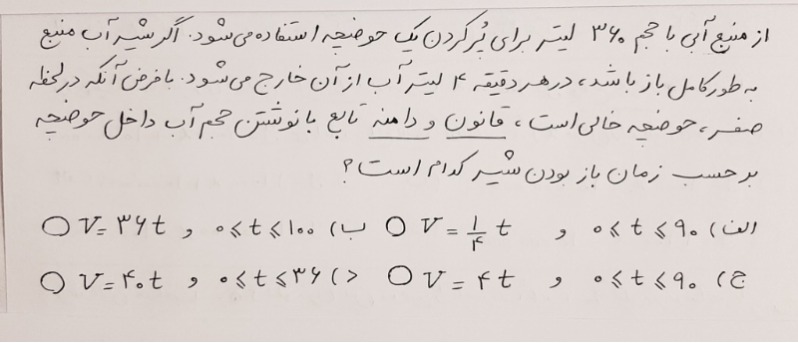 از منبع آبی با حجم ۳۶۰ لیتر برای پُر کردن یک حوضچه استفاده می‌شود. اگر شیر آب منبع
به طور کامل باز باشد، در هر دقیقه ۴ لیتر آب از آن خارج می‌شود. با فرض آنکه در لحظه
صفر، حوضچه خالی است، قانون و دامنه تابع با نوشتن حجم آب داخل حوضچه
بر حسب زمان باز بودن شیر کدام است؟
الف) ۰ ⩽ t ⩽ ۹۰ و V = ۱/۴ t ○ ب) ۰ ⩽ t ⩽ ۱۰۰ و V = ۳۶t ○
ج) ۰ ⩽ t ⩽ ۹۰ و V = ۴t ○ د) ۰ ⩽ t ⩽ ۳۶ و V = ۴۰t ○